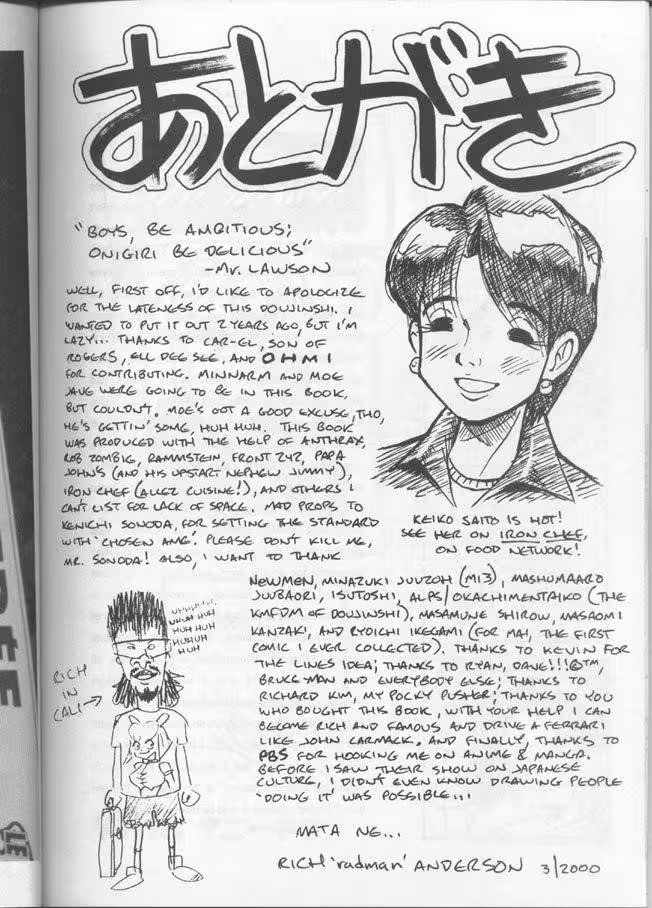 あとがき
"BOYS, BE AMBITIOUS;
ONIGIRI BE DELICIOUS"
-Mr. LAWSON
WELL, FIRST OFF, I'D LIKE TO APOLOGIZE
FOR THE LATENESS OF THIS DOUJINSHI. I
WANTED TO PUT IT OUT 2 YEARS AGO, BUT I'M
LAZY... THANKS TO CAR-EL, SON OF
ROGERS, ELL DEE SEE, AND OHMI
FOR CONTRIBUTING. MINNARM AND MOE
JAVE WERE GOING TO BE IN THIS BOOK,
BUT COULDN'T. MOE'S GOT A GOOD EXCUSE, THO,
HE'S GETTIN' SOME, HUH HUH. THIS BOOK
WAS PRODUCED WITH THE HELP OF ANTHRAX,
ROB ZOMBIE, RAMMSTEIN, FRONT 242, PAPA
JOHN'S (AND HIS UPSTART NEPHEW JIMMY),
IRON CHEF (ALLEZ CUISINE!), AND OTHERS I
CAN'T LIST FOR LACK OF SPACE. MAD PROPS TO
KENICHI SONODA, FOR SETTING THE STANDARD
WITH 'CHOSEN AME'. PLEASE DON'T KILL ME,
MR. SONODA! ALSO, I WANT TO THANK
KEIKO SAITO IS HOT!
SEE HER ON IRON CHEF,
ON FOOD NETWORK!
NEWMEN, MINAZUKI JUUZOH (M13), MASHUMAARO
JUUBAORI, ISUTOSHI, ALPS/OKACHIMENTAIKO (THE
KMFDM OF DOUJINSHI), MASAMUNE SHIROW, MASAOMI
KANZAKI, AND RYOICHI IKEGAMI (FOR MAI, THE FIRST
COMIC I EVER COLLECTED). THANKS TO KEVIN FOR
THE LINES IDEA; THANKS TO RYAN, DAVE!!!©™,
BRUCE MAN AND EVERYBODY ELSE; THANKS TO
RICHARD KIM, MY POCKY PUSHER; THANKS TO YOU
WHO BOUGHT THIS BOOK, WITH YOUR HELP I CAN
BECOME RICH AND FAMOUS AND DRIVE A FERRARI
LIKE JOHN CARMACK. AND FINALLY, THANKS TO
PBS FOR HOOKING ME ON ANIME & MANGA.
BEFORE I SAW THEIR SHOW ON JAPANESE
CULTURE, I DIDN'T EVEN KNOW DRAWING PEOPLE
'DOING IT' WAS POSSIBLE...
UHUH HUH
HUH HUH
HUHUH
HUH
RICH
IN
CALI
MATA NE...
RICH 'radman' ANDERSON 3/2000